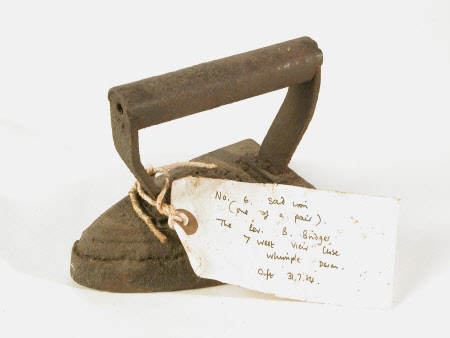 No. 6. Sad iron
(one of a pair).
The Rev. B. Bridger
7 West View Close
Whimple Devon.
Gift 31.7.84